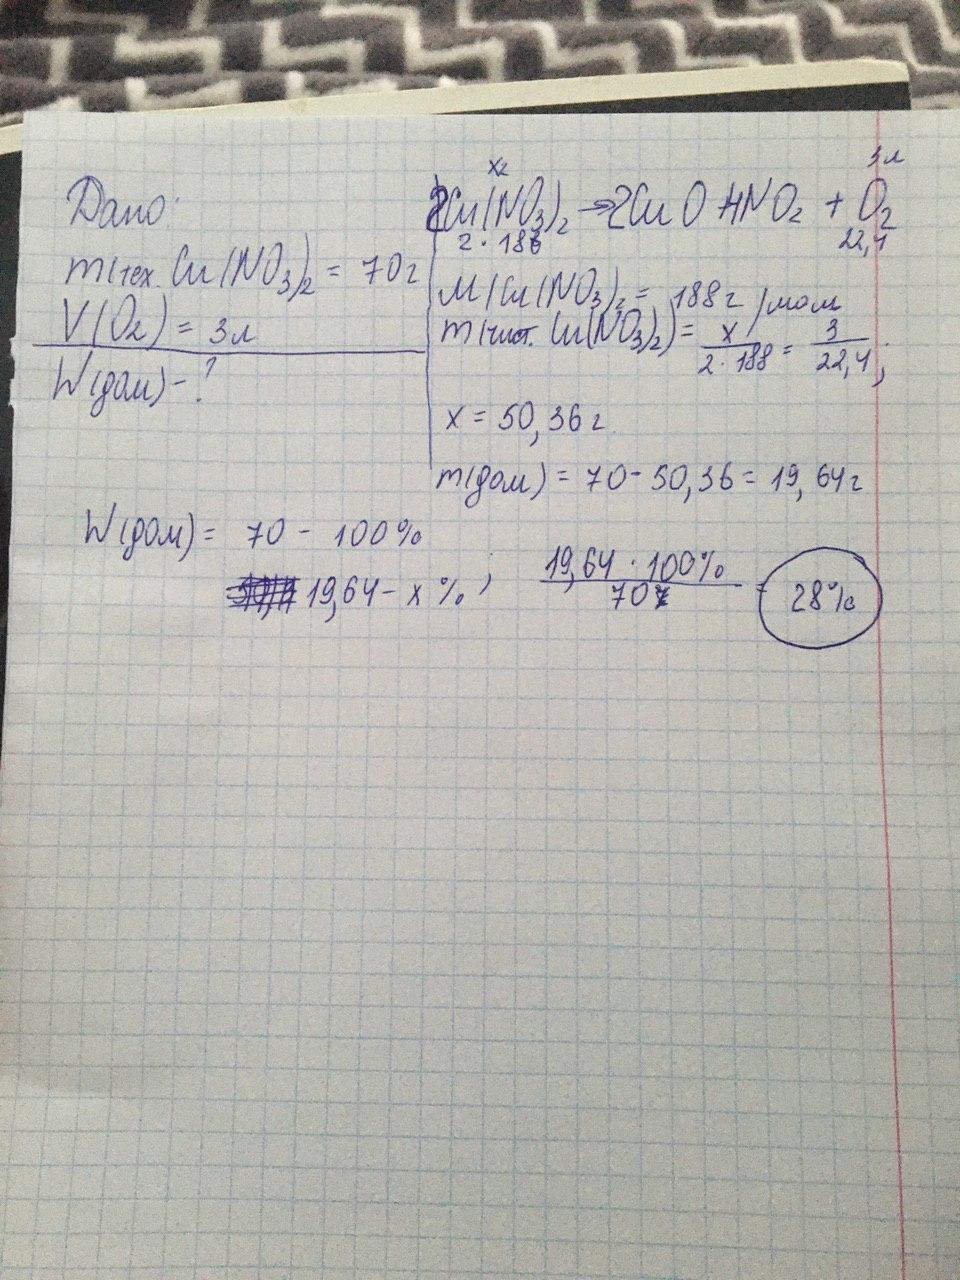 Дано:
m(тех. Cu(NO₃)₂ = 70г
V(O₂) = 3л
W(дом) - ?
x₂ 3л
2Cu(NO₃)₂ → 2CuO + 4NO₂ + O₂
2·188 22,4
M(Cu(NO₃)₂ = 188г/моль
m(чист. Cu(NO₃)₂) = x/2·188 = 3/22,4;
x = 50,36г
m(дом) = 70 - 50,36 = 19,64г
W(дом) = 70 - 100%
19,64 - x % ; 19,64 · 100%/70 = 28%